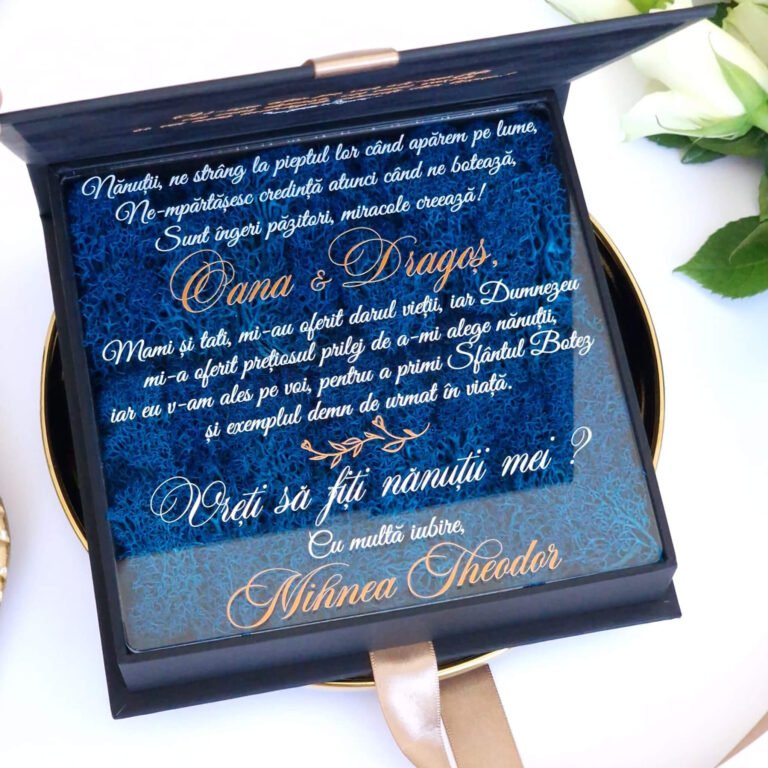 Nănuții, ne strâng la pieptul lor când apărem pe lume,
Ne-mpărtășesc credință atunci când ne botează,
Sunt îngeri păzitori, miracole creează!
Oana & Dragoș,
Mami și tati, mi-au oferit darul vieții, iar Dumnezeu
mi-a oferit prețiosul prilej de a-mi alege nănuții,
iar eu v-am ales pe voi, pentru a primi Sfântul Botez
și exemplul demn de urmat în viață.
Vreți să fiți nănuții mei ?
Cu multă iubire,
Mihnea Theodor